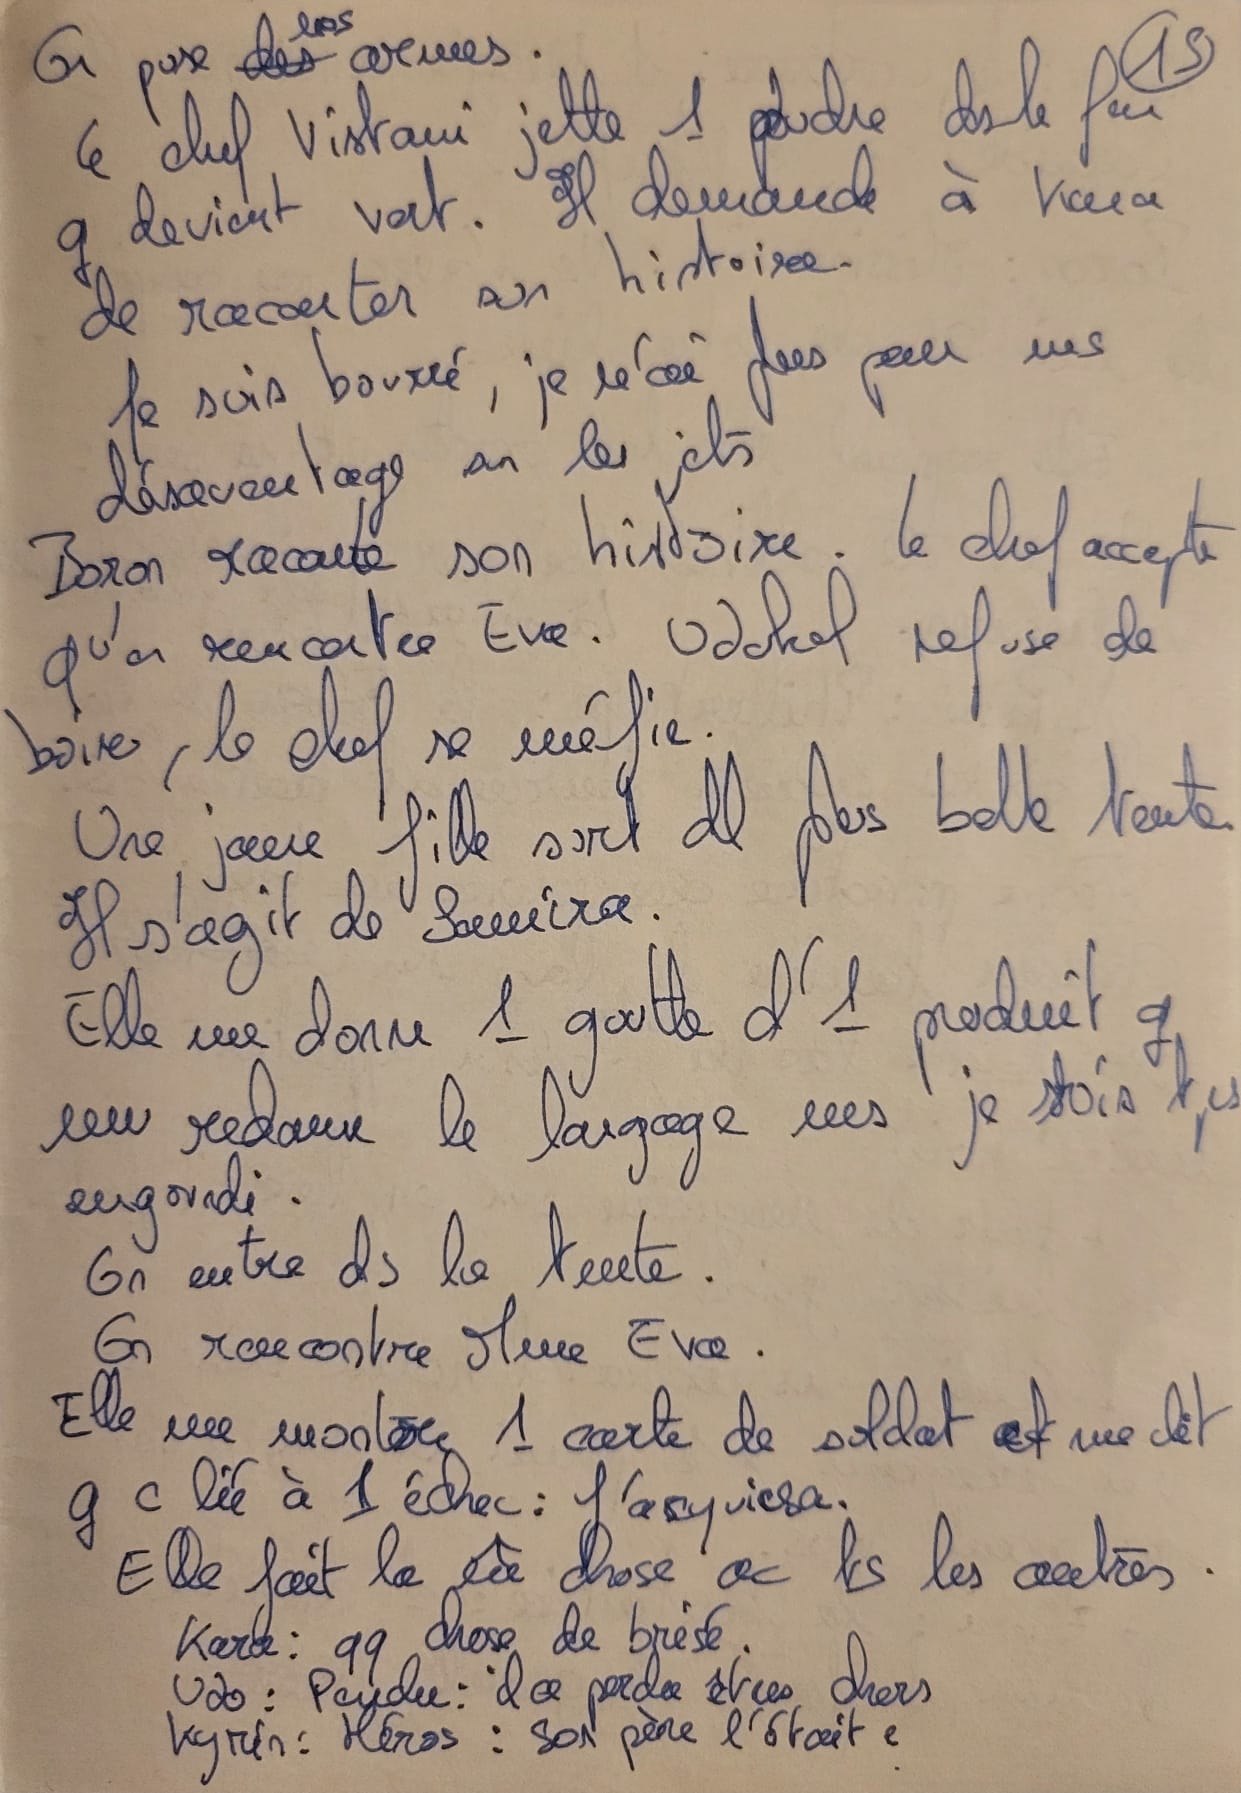 15
On pose ~~des~~ les armes.
Le chef Vistani jette 1 poudre ds le feu
q devient vert. Il demande à Kara
de raconter son histoire.
Je suis bourré, je
désavantage sur les jets
Boron raconte son histoire. Le chef accepte
qu'on rencontre Eva. Udokel refuse de
boire, le chef se méfie.
Une jeune fille sort dl plus belle tente.
Il s'agit de Samira.
Elle me donne 1 goutte d'1 produit q
me redonne le langage ms je suis tjs
engourdi.
On entre ds la tente.
On rencontre Mme Eva.
Elle me montre 1 carte de soldat et me dit
q c lié à 1 échec : j'acquiesça.
Elle fait la mê chose ac ts les autres.
Kara : qq chose de brisé.
Udo : Pendu : il a perdu êtres chers
Kyrin : Héros : son père l'était